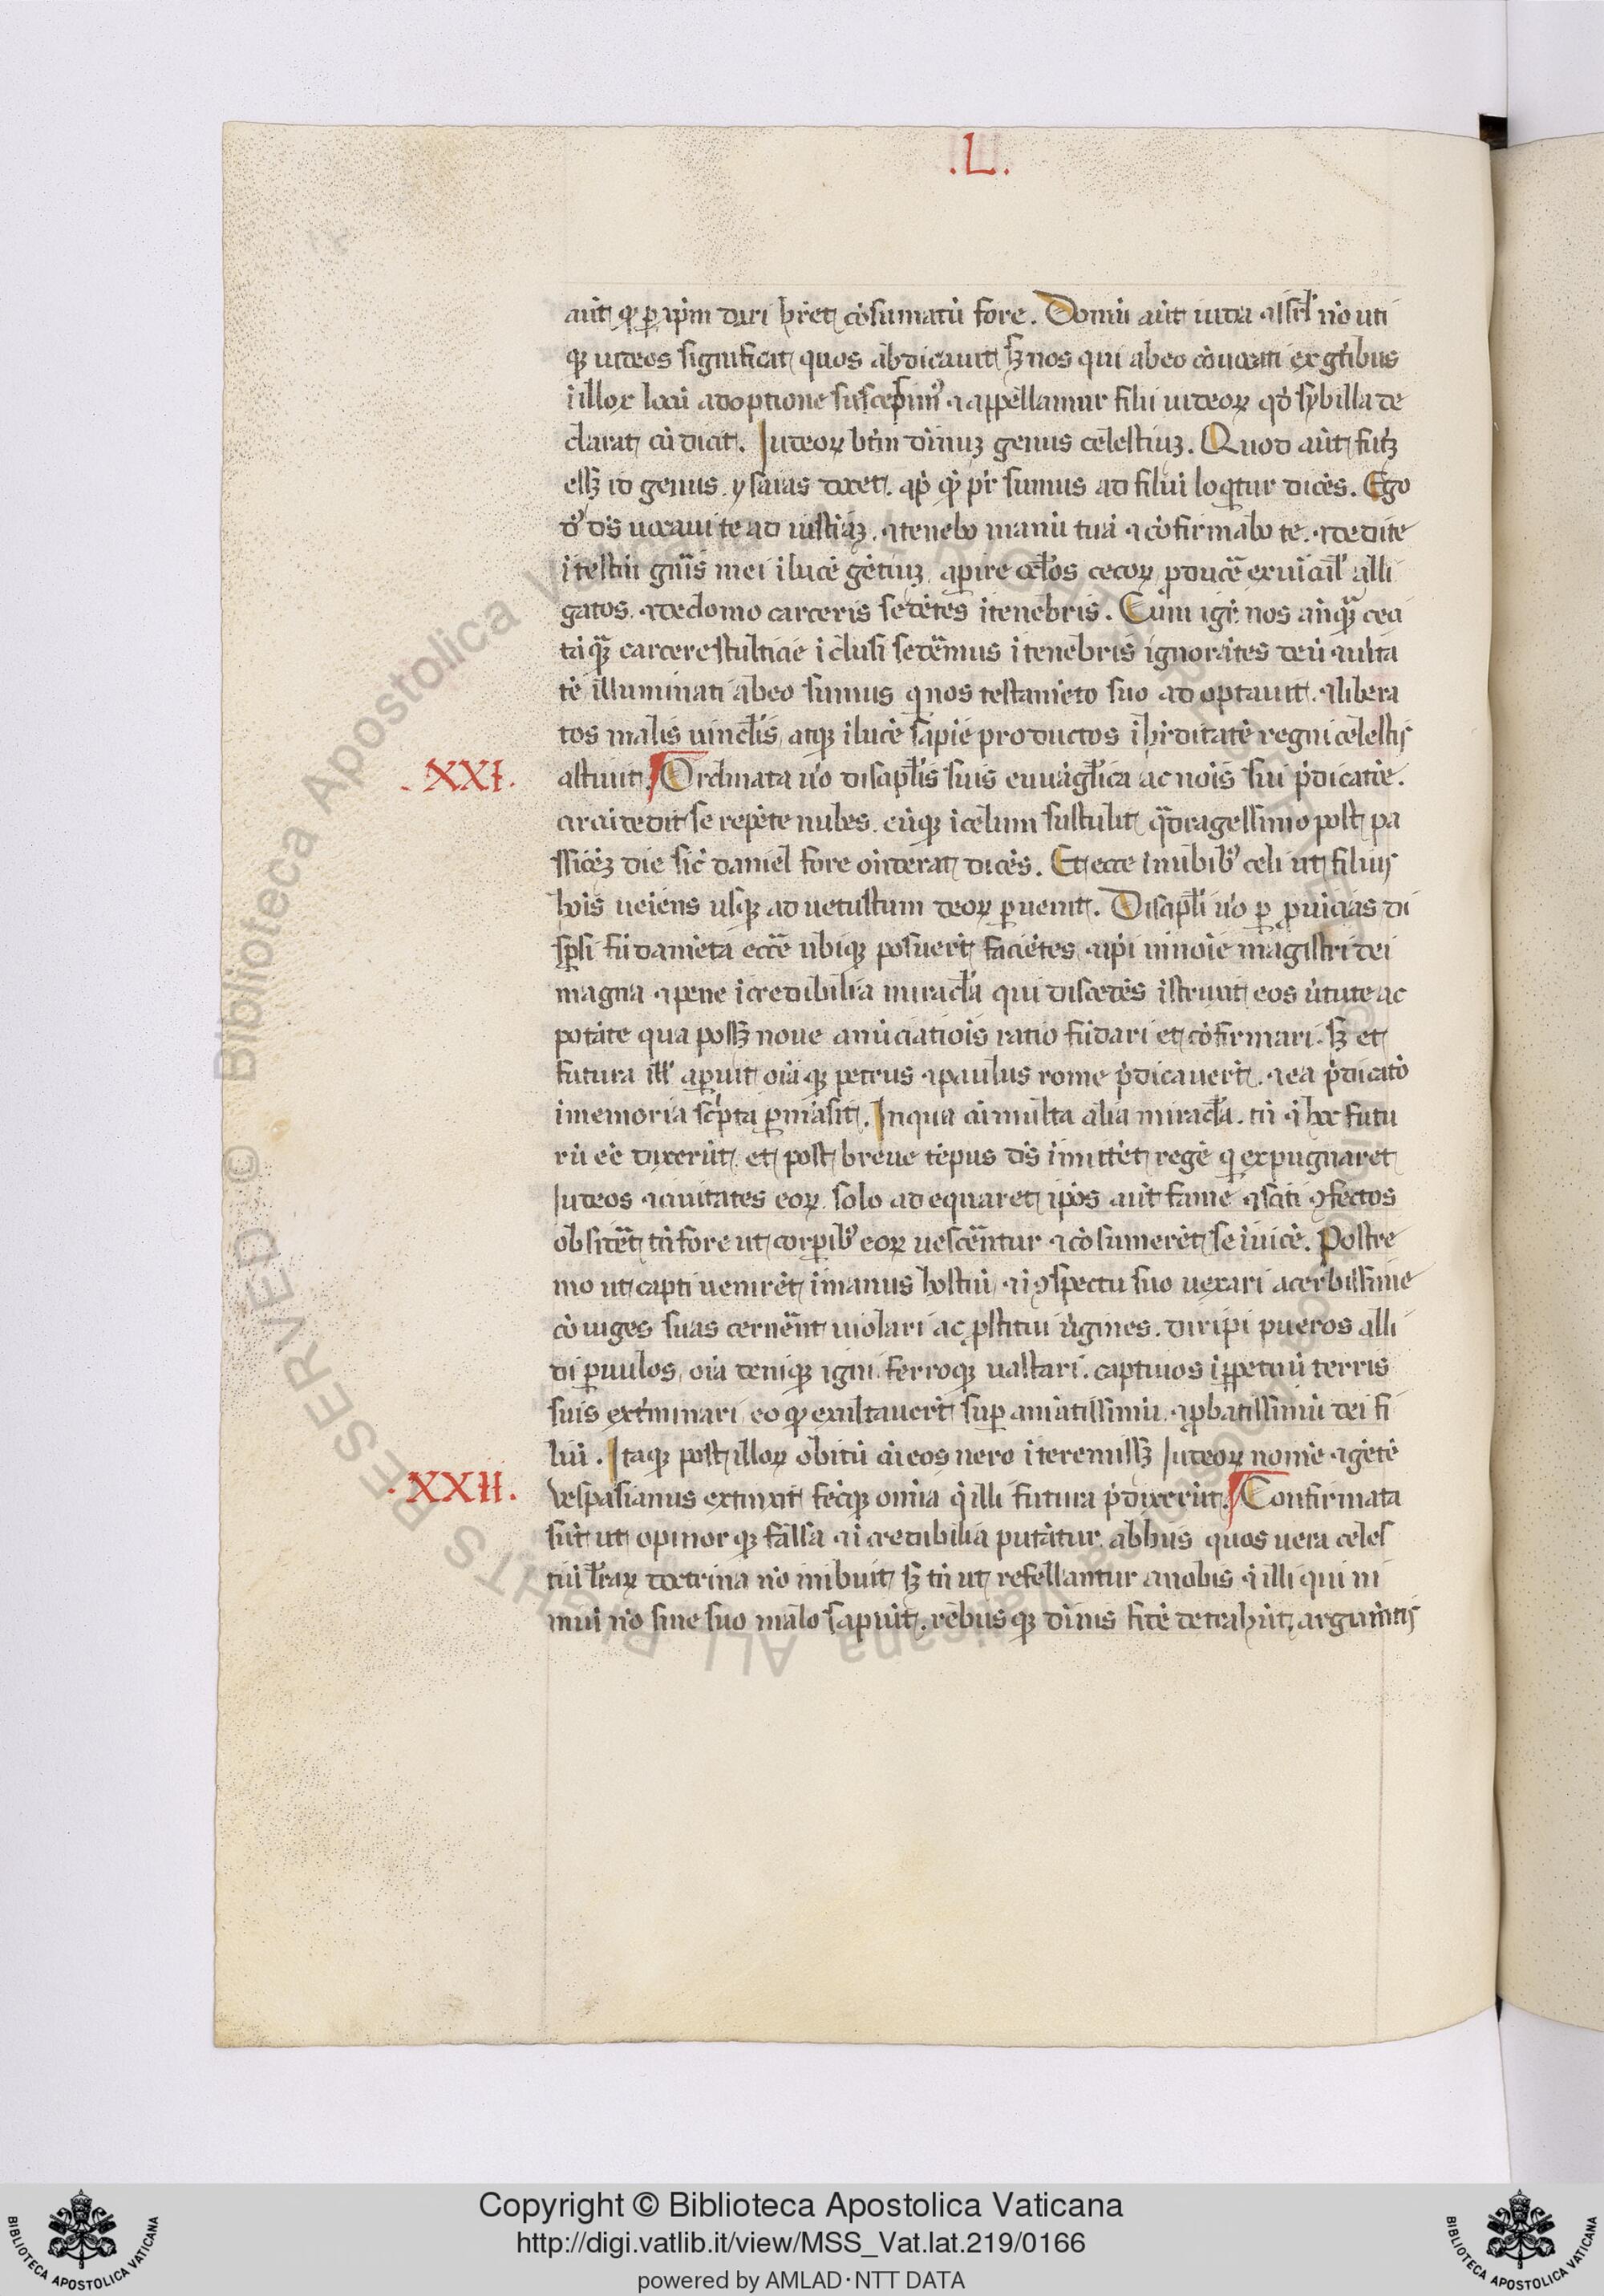 .L.
aut̄ qđ ꝑ xp̄m dari hr̄et cōsumatū fore. Domū aūt iuda ⁊ isrl̄ nō uti
qꝫ iudeos significat quos abdicauit sꝫ nos qui abeo cōuocati ex gēribus
i illoꝝ locū adoptione suscepti sumꝰ ⁊ appellamur filii iudeoꝝ qđ sybilla de
clarat cū dicit. Iudeoꝝ btm̄ diuinuꝫ genus celestiuꝫ. Quod aūt futꝫ
essꝫ id genus. ysaias docet. apđ quē pr̄ sumus ad filiū loqtur dicēs. Ego
dn̄s ds̄ uocaui te ad iustiāꝫ. ⁊ tenebo manū tuā ⁊ cōfirmabo te. ⁊ dedi te
i testm̄ gn̄is mei i lucē gētiuꝫ aperire oclos cecoꝝ ꝓducē ex uicul̄ alli
gatos. ⁊ de domo carceris sedētes i tenebris. Cum igr̄ nos anq̄ꝫ ceci
tāq̄ꝫ carcere stulticie iclusi sedēmus i tenebris ignorātes deū ⁊ uita
tē illuminati abeo sumus q nos testamēto suo adoptauit. ⁊ libera
tos malis uinclīs atqꝫ i lucē sapiē productos i hrēditatē regni celestis
. XXI.
asciuit. Ordinata uō discipl̄is suis euuāgl̄ica ac nōis sui p̄dicatōe.
circūdedit se repēte nubes. eūqꝫ i celum sustulit q̄dragessimo post pa
ssiōeꝫ die sic̄ daniel fore oñderat dicēs. Et ecce i nubibꝰ celi ut filius
hōis ueiens usqꝫ ad uetustum deoꝝ ꝑuenit. Discipl̄i uō ꝑ ꝓuīcias di
spersi fūdamēta ecc̄e ubiqꝫ posuerūt faciētes ⁊ ip̄i ī noīe magistri dei
magna ⁊ pene icredibilia miracl̄a qui discedēs istruxit eos ūtute ac
potāte qua possꝫ noue anūciatiōis ratio fūdari et cōfirmari. sꝫ et
futura ill̄ aperuit oīa qꝫ petrus ⁊ paulus rome p̄dicauerūt. ⁊ ea p̄dicatō
i memoria scr̄pta ꝑmāsit. In qua cū multa alia miracl̄a. tū ⁊ hoc futu
rū eē dixerūt. et post breue tēpus ds̄ imittēt regē q expugnaret
Iudeos ⁊ ciuitates eoꝝ. solo adequaret ipōs aūt fame ⁊ siti ꝯfectos
obsidēt tū fore ut corpibꝰ eoꝝ uescēntur ⁊ cōsumerēt se īuicē. Postre
mo ut capti uenirēt i manus hostiū. ⁊ i ꝯspectu suo uexari acerbissime
cōiuges suas cernēnt uiolari ac ꝓstitui ūgines. diripi pueros alli
di ꝑuulos. oīa deniqꝫ igni ferroqꝫ uastari. captiuos i ꝑpetuū terris
suis extm̄inari eo qđ exultauerīt super amātissimū. ⁊ ꝓbatissimū dei fi
liū. Itaqꝫ post illoꝝ obitū cū eos nero iteremissꝫ Iudeoꝝ nomē ⁊ gētē
·XXII.
Vespasianus extinxit fecitqꝫ omnia q̄ illi futura p̄dixerūt. Confirmata
sūt ut opinor qꝫ falsa ⁊ icredibilia putātur. ab hus quos uera celes
tiū l̄raꝝ doctrina nō imbuit sꝫ tū ut refellantur a nobis ⁊ illi qui ni
miū nō sine suo malo sapiūt. rebus qꝫ diuinis fidē detrahūt, argumētis
Copyright © Biblioteca Apostolica Vaticana
http://digi.vatlib.it/view/MSS_Vat.lat.219/0166
powered by AMLAD·NTT DATA